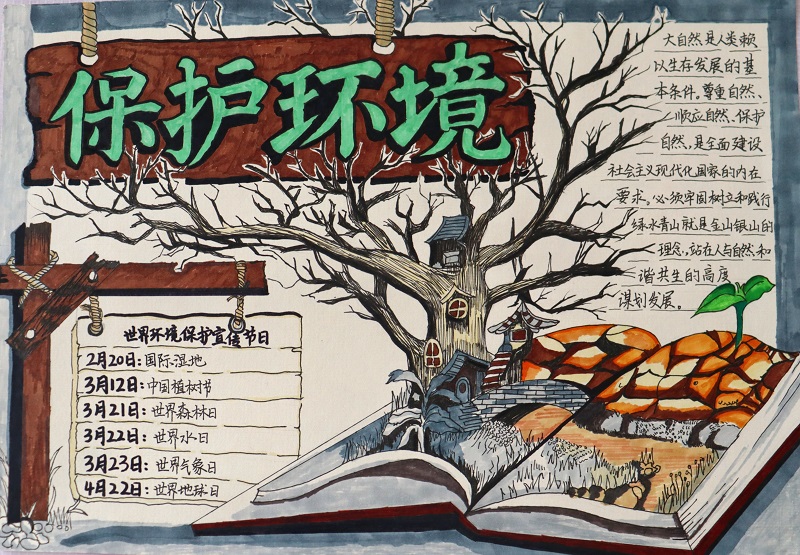 保护环境
大自然是人类赖
以生存发展的基
本条件。尊重自然、
顺应自然、保护
自然，是全面建设
社会主义现代化国家的内在
要求。必须牢固树立和践行
绿水青山就是金山银山的
理念，站在人与自然和
谐共生的高度
谋划发展。
世界环境保护宣传节日
2月20日：国际湿地
3月12日：中国植树节
3月21日：世界森林日
3月22日：世界水日
3月23日：世界气象日
4月22日：世界地球日